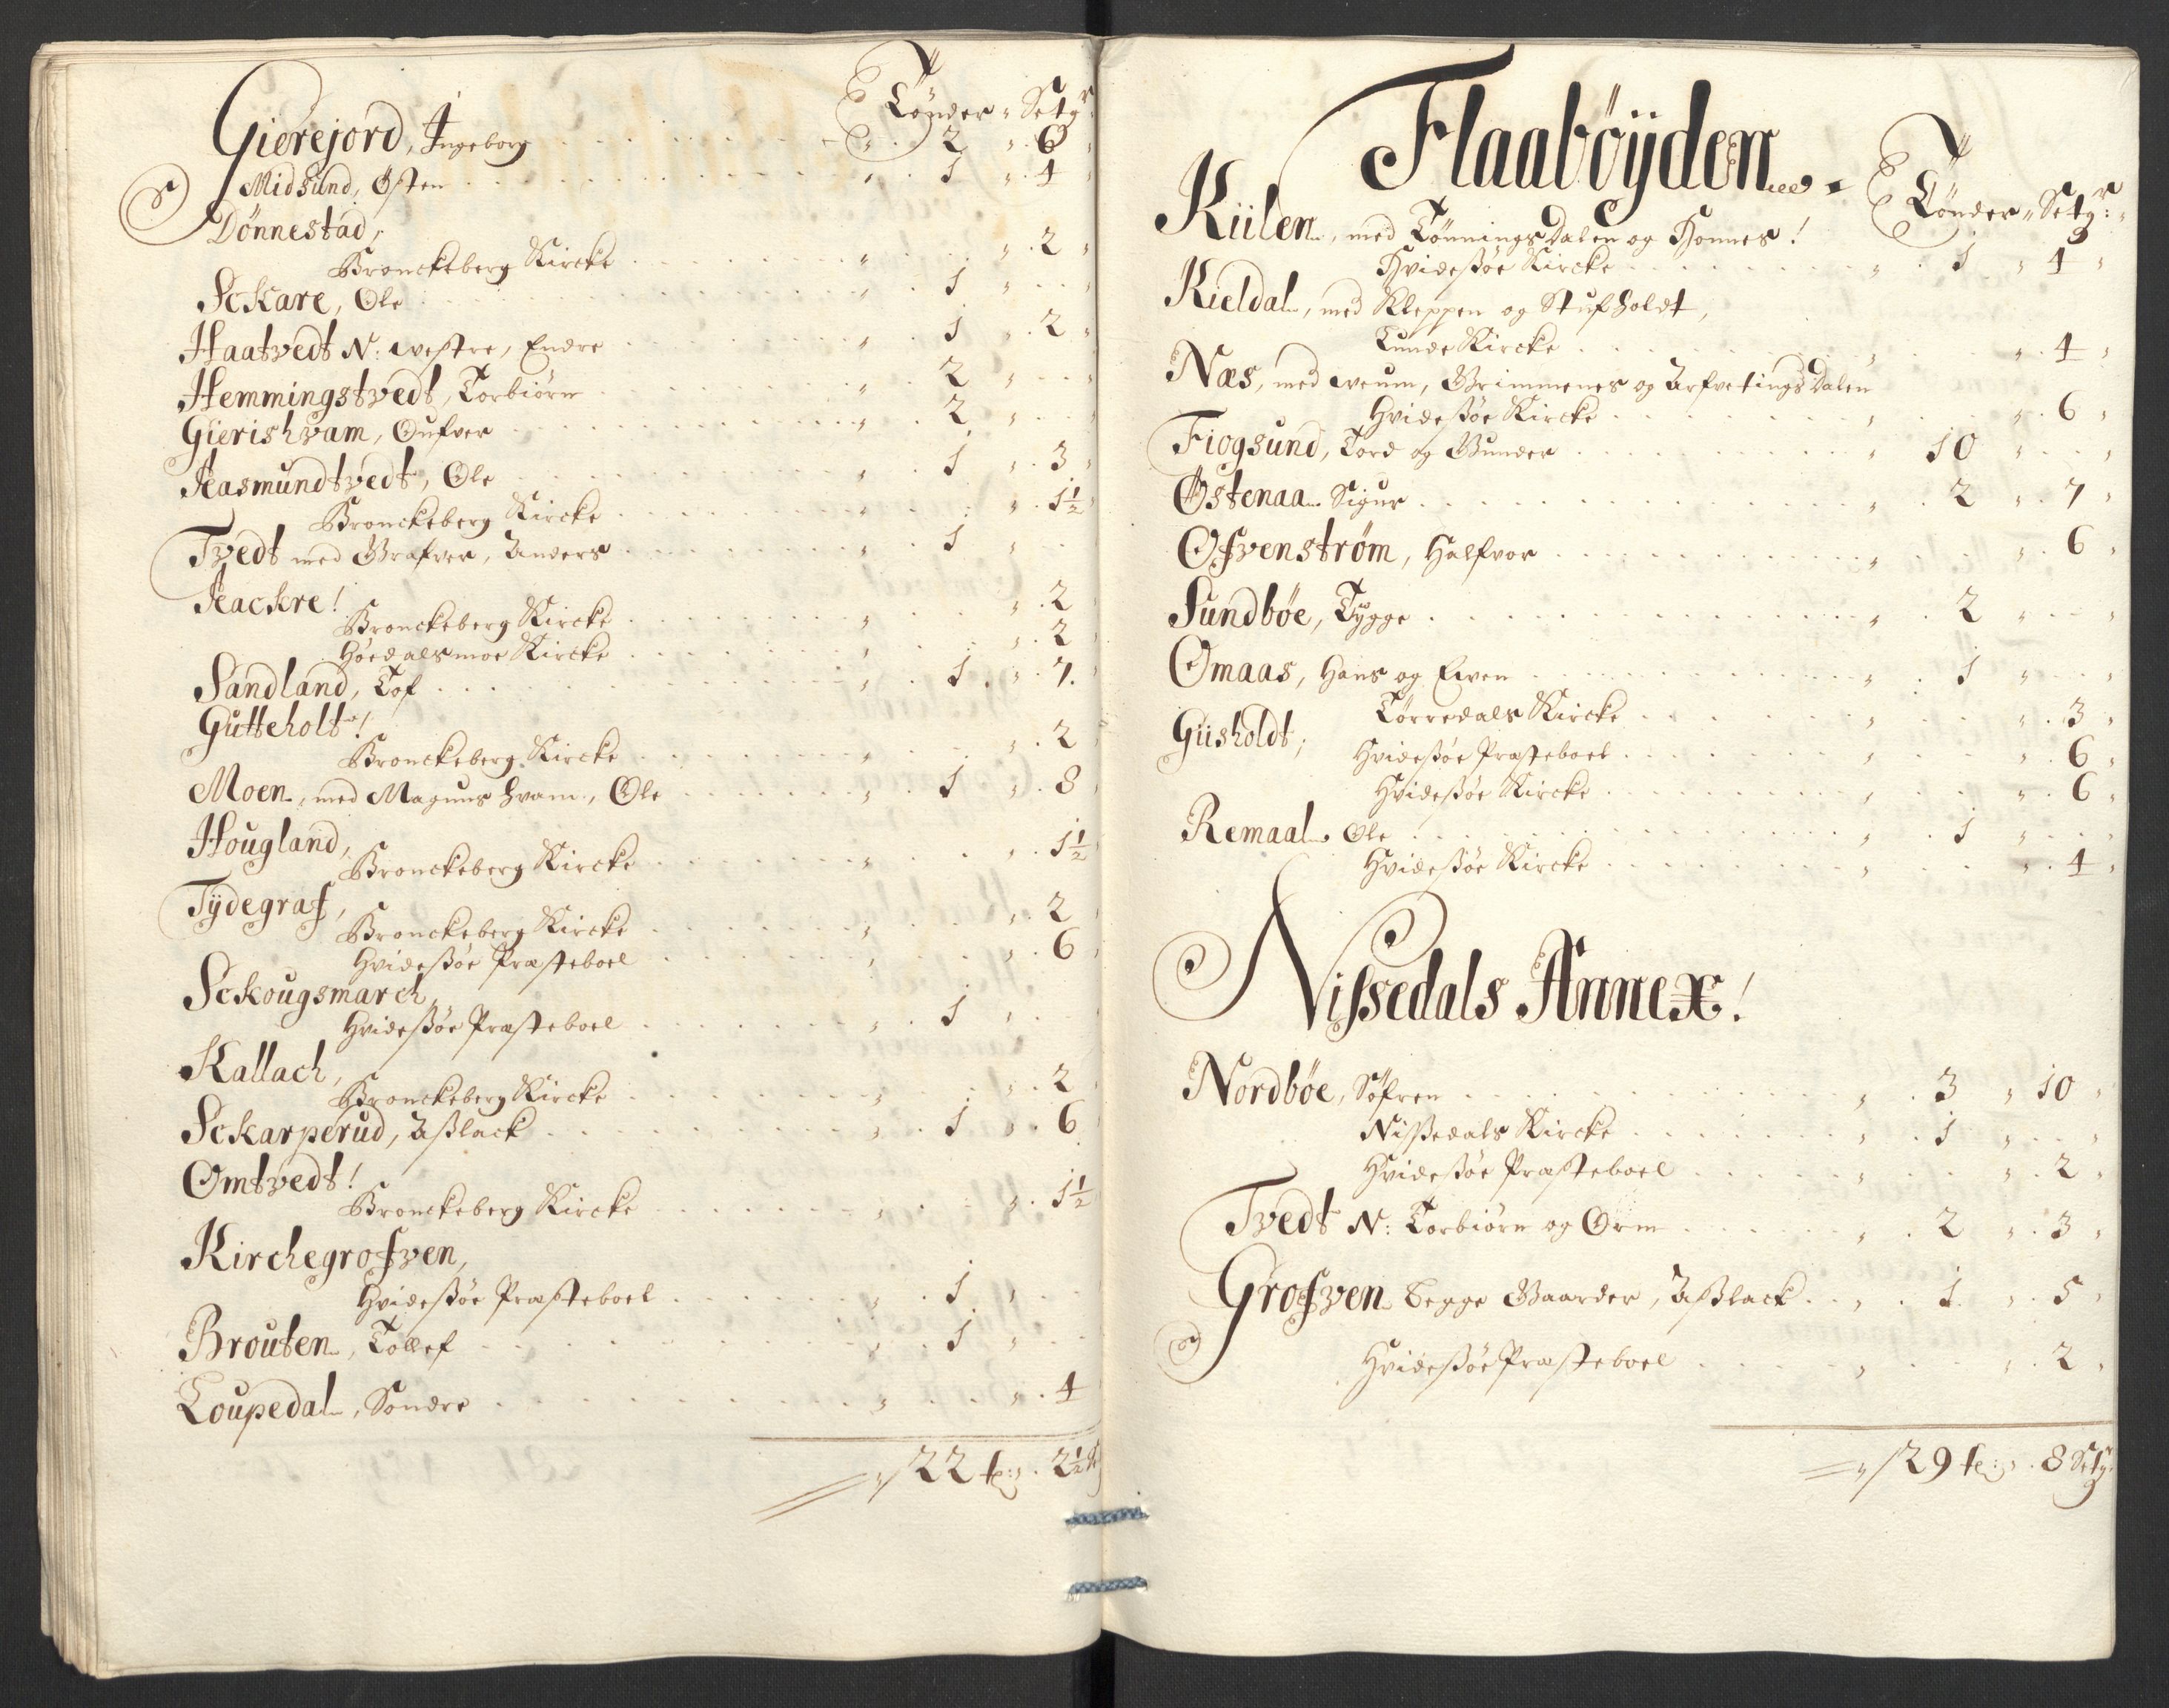 Tönder „ Setgr
Gierejord, Ingeborg „ 2 „ 6 „
Midsund, Østen „ 1 „ 4 „
Dönnestad,
Bronckeberg Kircke „ „ 2 „
Sckare, Ole „ 1 „
Haatvedt N: westre, Endre „ 1 „ 2 „
Hemmingstvedt, Torbiörn „ 2 „
Gierishvam, Oufver „ 2 „
Aasmundtvedt, Ole „ 1 „ 3 „
Bronckeberg Kircke „ „ 1½ „
Tvedt med Grafver, Anders „ 1 „
Aackre!
Bronckeberg Kircke „ „ 2 „
Höedalsmoe Kircke „ „ 2 „
Sandland, Tof „ 1 „ 7.
Gutteholt!
Bronckeberg Kircke „ „ 2 „
Moen, med Magnus hvam, Ole „ 1 „ 8 „
Hougland,
Bronckeberg Kircke „ „ 1½
Tÿdegraf,
Bronckeberg Kircke „ „ 2 „
Hvidesßöe Præsteboel „ „ 6 „
Sckougsmarch,
Hvidesßöe Præsteboel „ 1 „
Kallach,
Bronckeberg Kircke „ „ 2 „
Sckarperud, Aßlack „ 1 „ 6
Omtvedt!
Bronckeberg Kircke „ „ 1½
Kirchegrofven,
Hvidesßöe Præsteboel „ 1 „
Brouten, Tollef „ 1 „
Loupedal, Sondre „ „ 4
22 te: „ 2½ S
Flaaböÿden.
Tönder „ Setgr: „
Kiilen, med Tönnings Dalen og Honnes!
Hvidesßöe Kircke „ 1 „ 4 „
Kieldal, med Kleppen og Stufholdt,
Lunde Kircke „ „ 4 „
Næs, med weum, Grimmenes og Arfvetings Dalen
Hvidesßöe Kircke „ „ 6 „
Fiogsund, Tord og Gunder „ 10 „
Østenaa Sigur „ 2 „ 7 „
Ofvenstrøm, Halfvor „ „ 6 „
Sundbøe, Tygge „ 2 „
Omaas, Hans og Ewen „ 1 „
Törredals Kircke „ „ 3 „
Giisholdt,
Hvidesßöe Præsteboel „ „ 6 „
Hvidesßöe Kircke „ „ 6 „
Remaal Ole „ 1 „
Hvidesßöe Kircke „ „ 4 „
Nissedals Annex!
Nordbøe, Söfren „ 3 „ 10 „
Nissedals Kircke „ 1 „
Hvidesßöe Præsteboel „ „ 2 „
Tvedt N: Torbiörn og Orm „ 2 „ 3 „
Grofven begge Gaarder, Aßlack „ 1 „ 5 „
Hvidesßöe Præsteboel „ „ 2 „
29 te: „ 8 Setgr